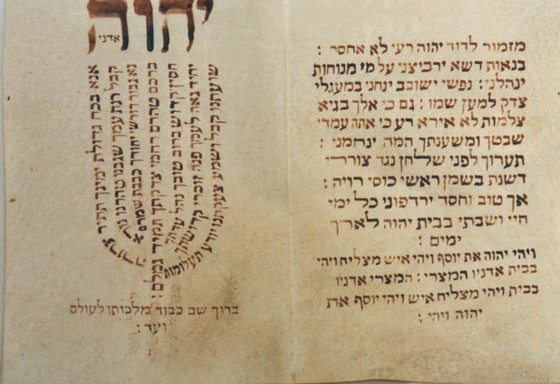 מזמור לדוד יהוה רעי לא אחסר :
בנאות דשא ירביצני על מי מנוחות
ינהלני : נפשי ישובב ינחני במעגלי
צדק למען שמו : גם כי אלך בגיא
צלמות לא אירא רע כי אתה עמדי
שבטך ומשענתך המה ינחמני :
תערוך לפני שלחן נגד צוררי :
דשנת בשמן ראשי כוסי רויה :
אך טוב וחסד ירדפוני כל ימי
חיי ושבתי בבית יהוה לארך
ימים :
ויהי יהוה את יוסף ויהי איש מצליח ויהי
בבית אדניו המצרי : המצרי אדניו
בבית ויהי מצליח איש ויהי יוסף את
יהוה ויהי :
יהוה
אדני
אנא בכח גדולת ימינך תתיר צרורה
קבל רנת עמך שגבנו טהרנו נורא
נא גבור דורשי יחודך כבבת שמרם
ברכם טהרם רחמי צדקתך תמיד גמלם :
חסין קדוש ברוב טובך נהל עדתך
יחיד גאה לעמך פנה זוכרי קדושתך
שועתנו קבל ושמע צעקתנו יודע תעלומות
ברוך שם כבוד מלכותו לעולם
ועד :